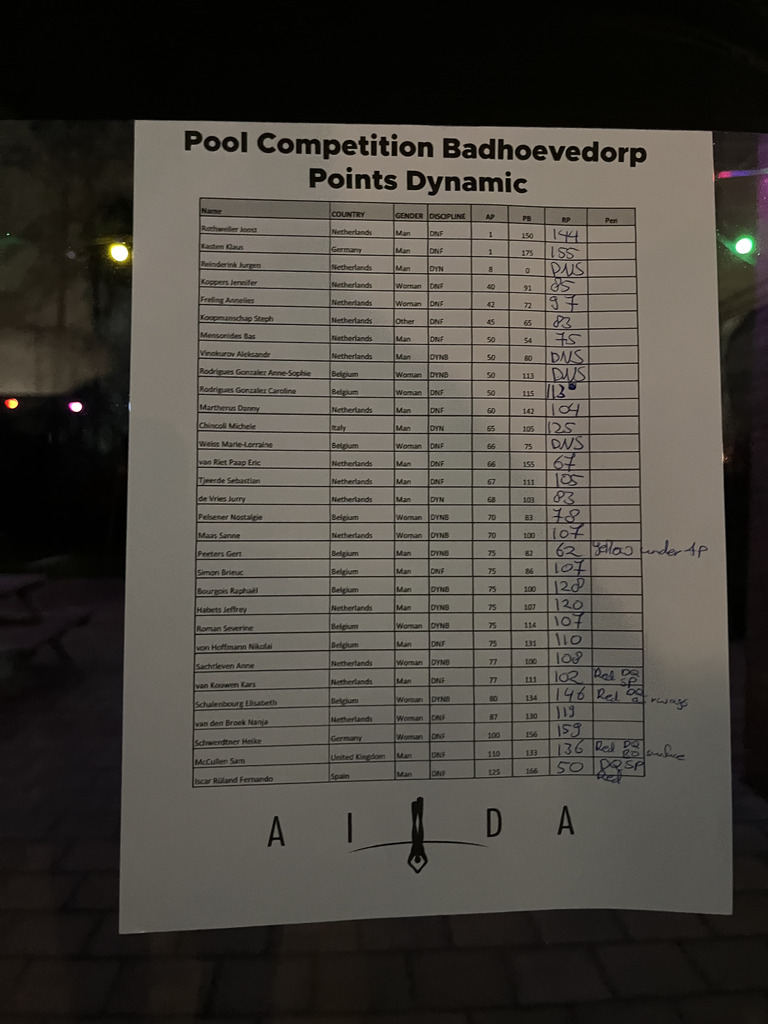 Pool Competition Badhoevedorp
Points Dynamic
Name COUNTRY GENDER DISCIPLINE AP PB RP Pen
Rothweiler Joost Netherlands Man DNF 1 150 144
Kasten Klaus Germany Man DNF 1 175 155
Reinderink Jurgen Netherlands Man DYN 8 0 DNS
Koppers Jennifer Netherlands Woman DNF 40 91 85
Freling Annelies Netherlands Woman DNF 42 72 97
Koopmanschap Steph Netherlands Other DNF 45 65 83
Mensonides Bas Netherlands Man DNF 50 54 75
Vinokurov Aleksandr Netherlands Man DYNB 50 60 DNS
Rodrigues Gonzalez Anne-Sophie Belgium Woman DYNB 50 113 DNS
Rodrigues Gonzalez Caroline Belgium Woman DNF 50 115 113
Martherus Danny Netherlands Man DNF 60 142 104
Chincoli Michele Italy Man DYN 65 105 125
Weiss Marie-Lorraine Belgium Woman DNF 66 75 DNS
van Riet Paap Eric Netherlands Man DNF 66 155 67
Tjeerde Sebastian Netherlands Man DNF 67 111 105
de Vries Jurry Netherlands Man DYN 68 103 83
Pelsener Nostalgie Belgium Woman DYNB 70 83 78
Maas Sanne Netherlands Woman DYNB 70 100 107
Peeters Gert Belgium Man DYNB 75 82 62 Yellow under AP
Simon Brieuc Belgium Man DNF 75 86 107
Bourgois Raphaël Belgium Man DYNB 75 100 128
Habets Jeffrey Netherlands Man DYNB 75 107 120
Roman Severine Belgium Woman DYNB 75 114 107
von Hoffmann Nikolai Belgium Man DNF 75 131 110
Sachtleven Anne Netherlands Woman DYNB 77 100 108
van Kouwen Kars Netherlands Man DNF 77 111 102 Red DQ SP
Schalenbourg Elisabeth Belgium Woman DYNB 80 134 146 Red DQ airways
van den Broek Nanja Netherlands Woman DNF 87 130 119
Schwerdtner Heike Germany Woman DNF 100 156 159
McCullen Sam United Kingdom Man DNF 110 133 136 Red DQ BO surface
Iscar Rüland Fernando Spain Man DNF 125 166 50 DQSP Red
A I D A